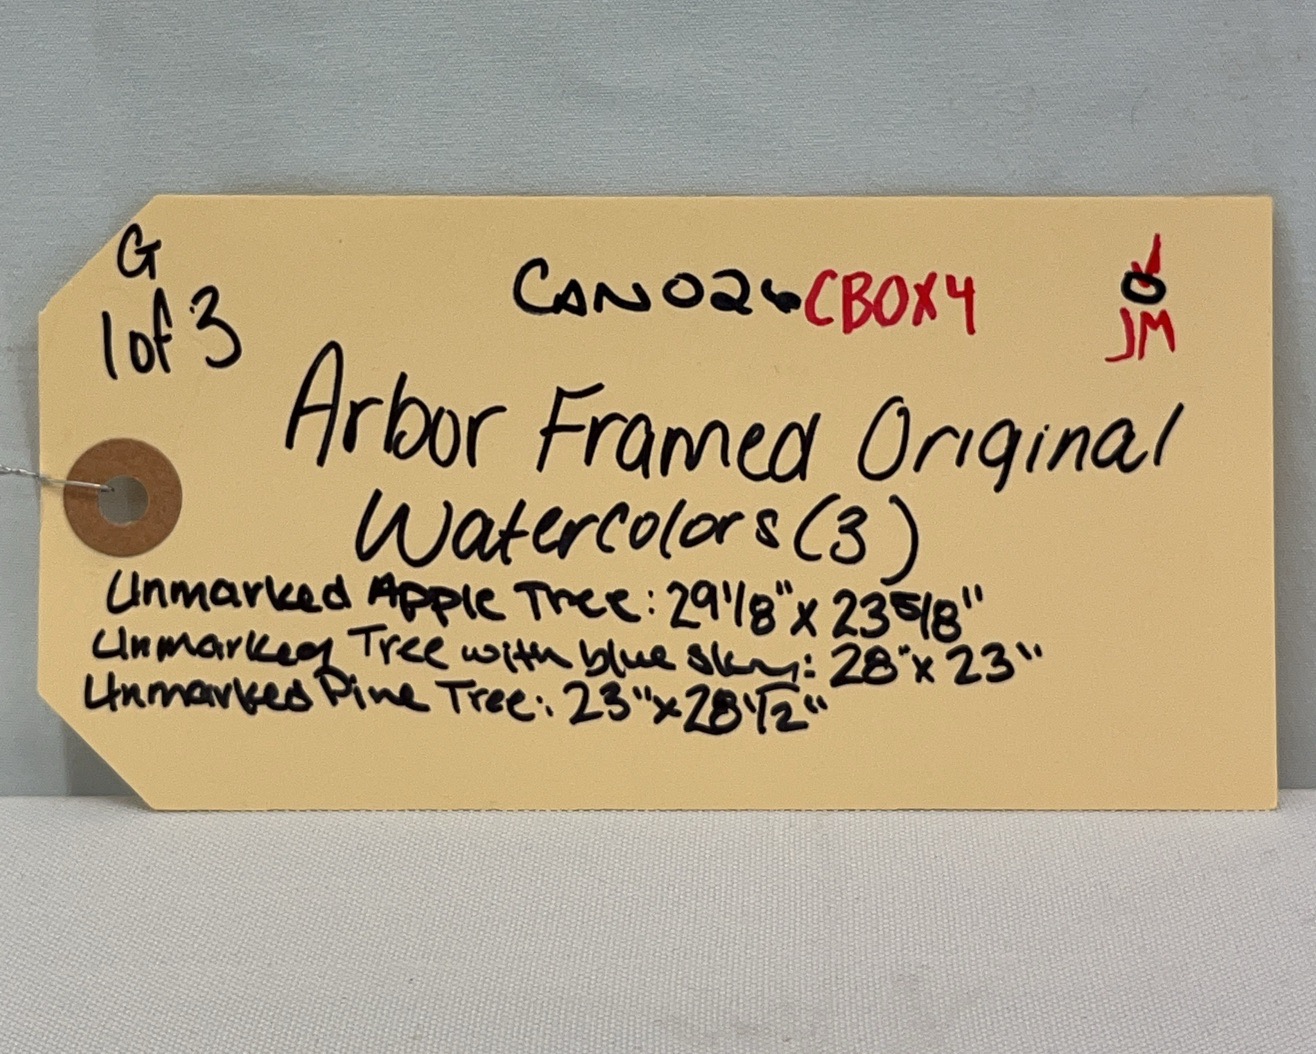 G
1 of 3
CAN026 CBOX4
O
JM
Arbor Framed Original
Watercolors (3)
Unmarked Apple Tree: 29 1/8" x 23 5/8"
Unmarked Tree with blue sky: 28" x 23"
Unmarked Pine Tree: 23" x 28 1/2"